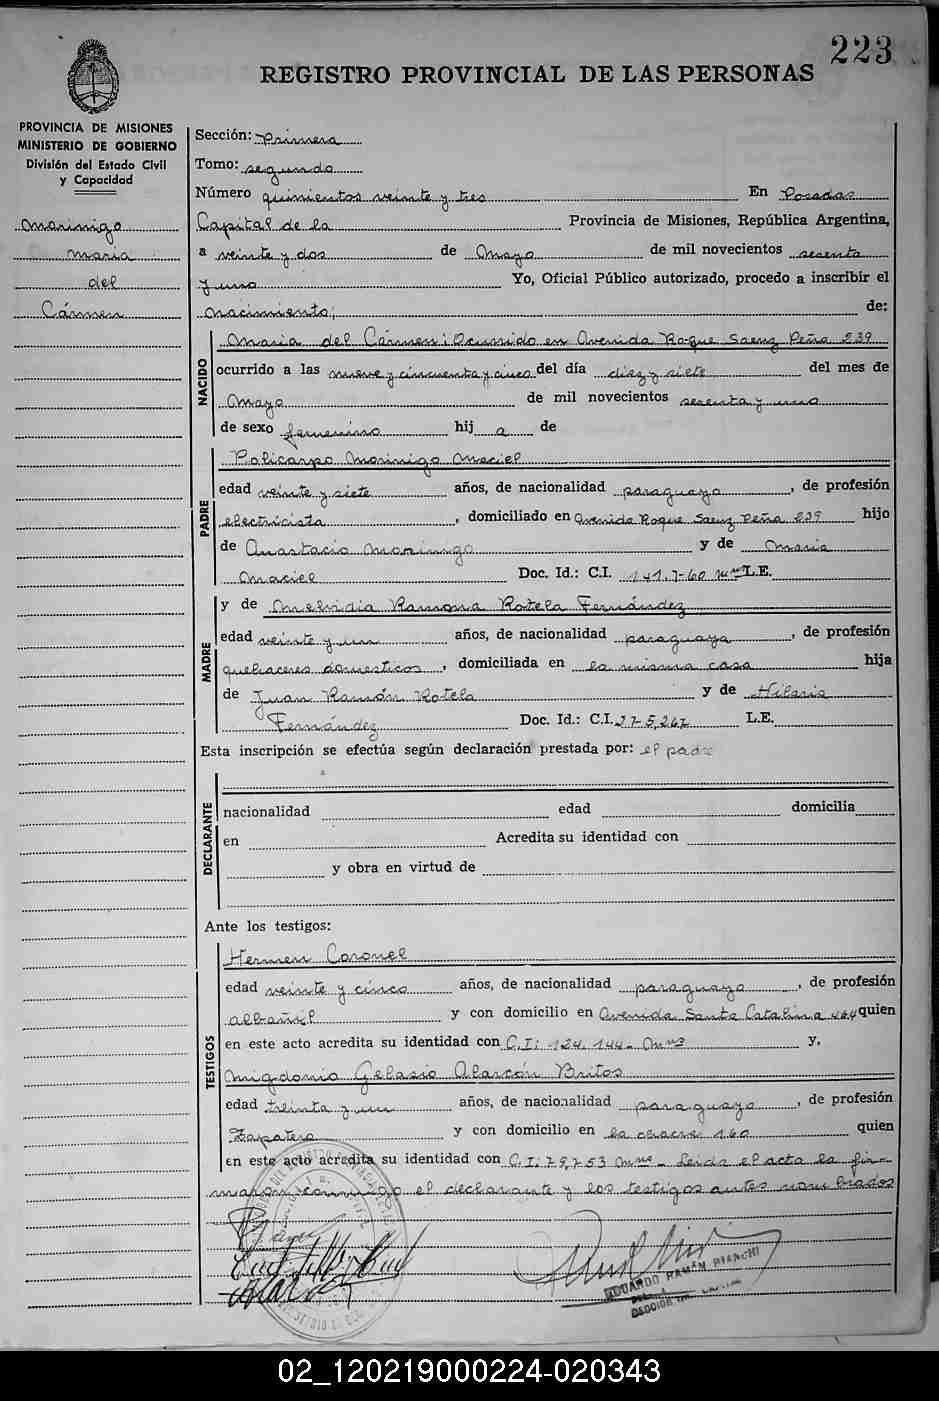 223
REGISTRO PROVINCIAL DE LAS PERSONAS
PROVINCIA DE MISIONES
MINISTERIO DE GOBIERNO
División del Estado Civil
y Capacidad
Morinigo
Maria
del
Cármen
Sección: Primera
Tomo: segundo
Número quinientos veinte y tres En Posadas
Capital de la Provincia de Misiones, República Argentina,
a veinte y dos de Mayo de mil novecientos sesenta
y uno Yo, Oficial Público autorizado, procedo a inscribir el
nacimiento; de:
NACIDO
Maria del Cármen; Ocurrido en Avenida Roque Saenz Peña 239
ocurrido a las nueve y cincuenta y cinco del día diez y siete del mes de
Mayo de mil novecientos sesenta y uno
de sexo femenino hij a de
PADRE
Policarpo Morinigo Maciel
edad veinte y siete años, de nacionalidad paraguayo, de profesión
electricista, domiciliado en Avenida Roque Saenz Peña 239 hijo
de Anastacio Morinigo y de Maria
Maciel Doc. Id.: C.I. L.E.
MADRE
y de Ramona Rotela Fernández
edad veinte y un años, de nacionalidad paraguaya, de profesión
quehaceres domesticos, domiciliada en la misma casa hija
de Juan Ramón Rotela y de Hilaria
Fernández Doc. Id.: C.I. L.E.
Esta inscripción se efectúa según declaración prestada por: el padre
DECLARANTE
nacionalidad edad domicilia
en Acredita su identidad con
y obra en virtud de
Ante los testigos:
TESTIGOS
Hermen Coronel
edad veinte y cinco años, de nacionalidad paraguayo, de profesión
albañil y con domicilio en Avenida Santa Catalina 464 quien
en este acto acredita su identidad con C.I: 124.144- Mnes y,
Migdonio Gelasio Alarcón Britos
edad treinta y un años, de nacionalidad paraguayo, de profesión
Zapatero y con domicilio en la chacra 160 quien
en este acto acredita su identidad con C.I: 75,753 Mnes- Leida el acta la fir-
man conmigo el declarante y los testigos antes nombrados
EDUARDO RAMÓN BIANCHI
02_120219000224-020343